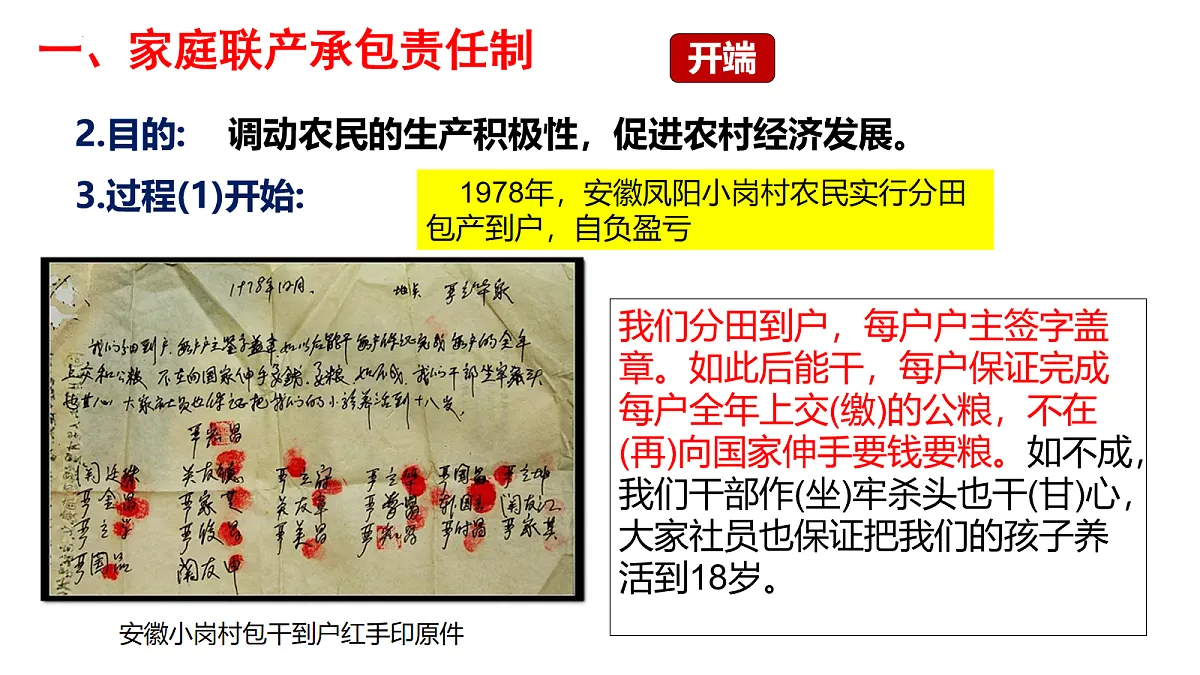 一、家庭联产承包责任制
开端
2.目的: 调动农民的生产积极性，促进农村经济发展。
3.过程(1)开始:
1978年，安徽凤阳小岗村农民实行分田
包产到户，自负盈亏
1978年12月. 地点 严立华家
我们分田到户,每户户主签字盖章,如以后能干每户保证完成每户的全年
上交和公粮 不在向国家伸手要钱要粮 如不成,我们干部坐牢杀头
也甘心 大家社员也保证把我们的小孩养活到十八岁,
严宏昌
关廷珠 关友德 严立符 严立华 严国昌 严立坤
严金昌 严家芝 关友章 严学昌 韩国云 关友江
严立学 严俊昌 严美昌 严宏昌 严付昌 严家其
严国品 关友申
我们分田到户，每户户主签字盖
章。如此后能干，每户保证完成
每户全年上交(缴)的公粮，不在
(再)向国家伸手要钱要粮。如不成，
我们干部作(坐)牢杀头也干(甘)心，
大家社员也保证把我们的孩子养
活到18岁。
安徽小岗村包干到户红手印原件